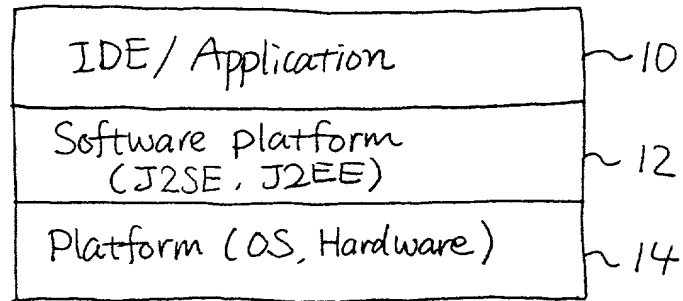 IDE/Application ~10
Software platform
(J2SE, J2EE) ~12
Platform (OS, Hardware) ~14